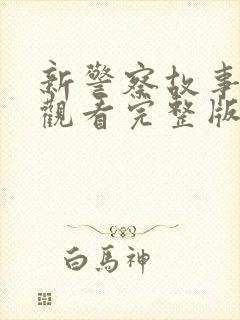 新警察故事
觀看完整版
白馬神